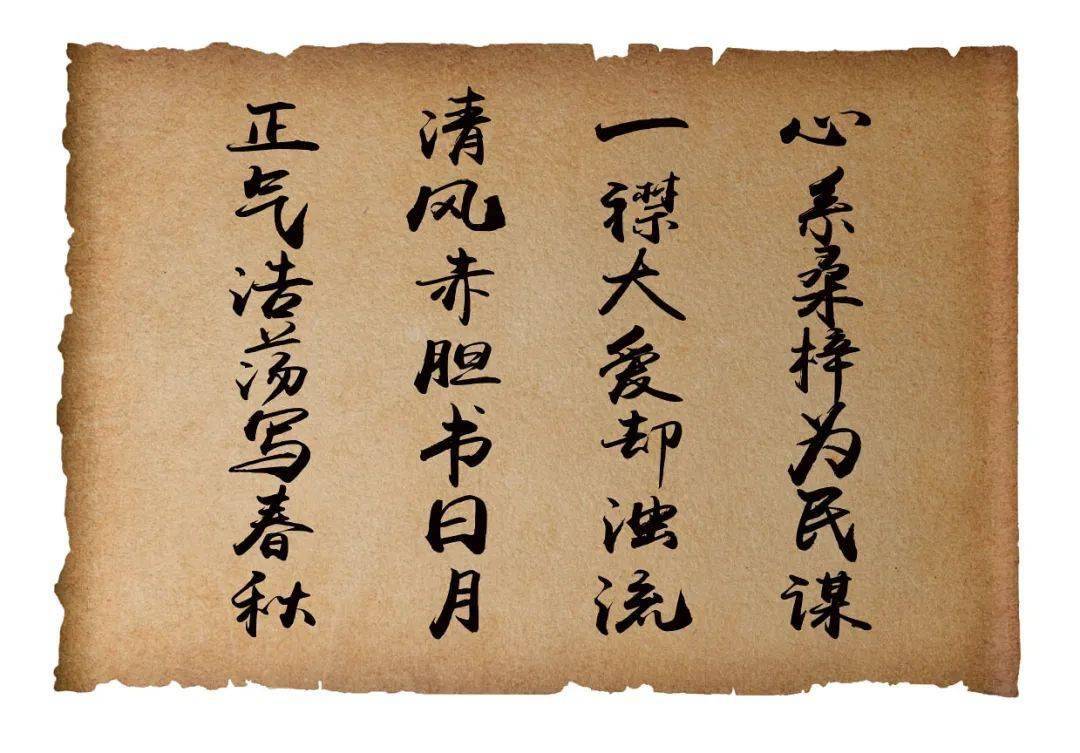 心系桑梓为民谋
一襟大爱却浊流
清风赤胆书日月
正气浩荡写春秋